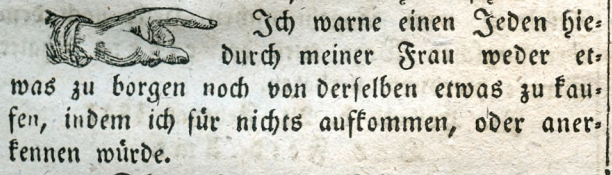 Ich warne einen Jeden hie⸗
durch meiner Frau weder et⸗
was zu borgen noch von derselben etwas zu kau⸗
fen, indem ich für nichts aufkommen, oder aner⸗
kennen würde.